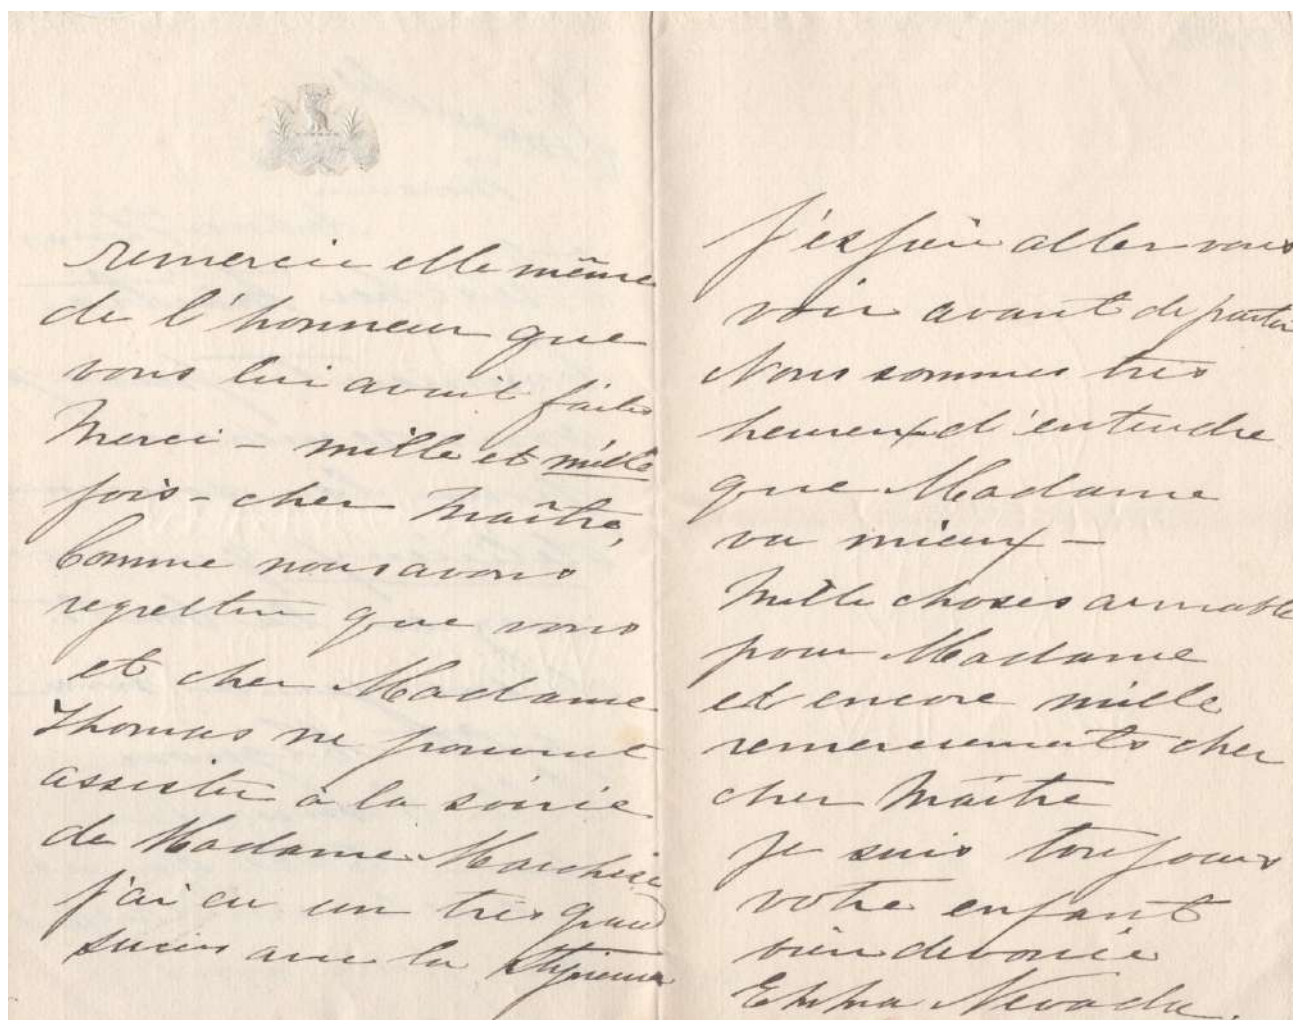 remercie elle même
de l'honneur que
vous lui avait faite
Merci – mille et mille
fois – cher Maître,
Comme nous avons
regretter que vous
et cher Madame
Thomas ne pouvait
assister à la soirée
de Madame Marchesi
j'ai eu un très grand
succès avec la Styrienne
J'espère aller vous
voir avant de partir
Nous sommes très
heureux d'entendre
que Madame
va mieux –
Mille choses aimable
pour Madame
et encore mille
remerciements cher
cher Maître
Je suis toujours
votre enfant
bien devouée
Emma Nevada.